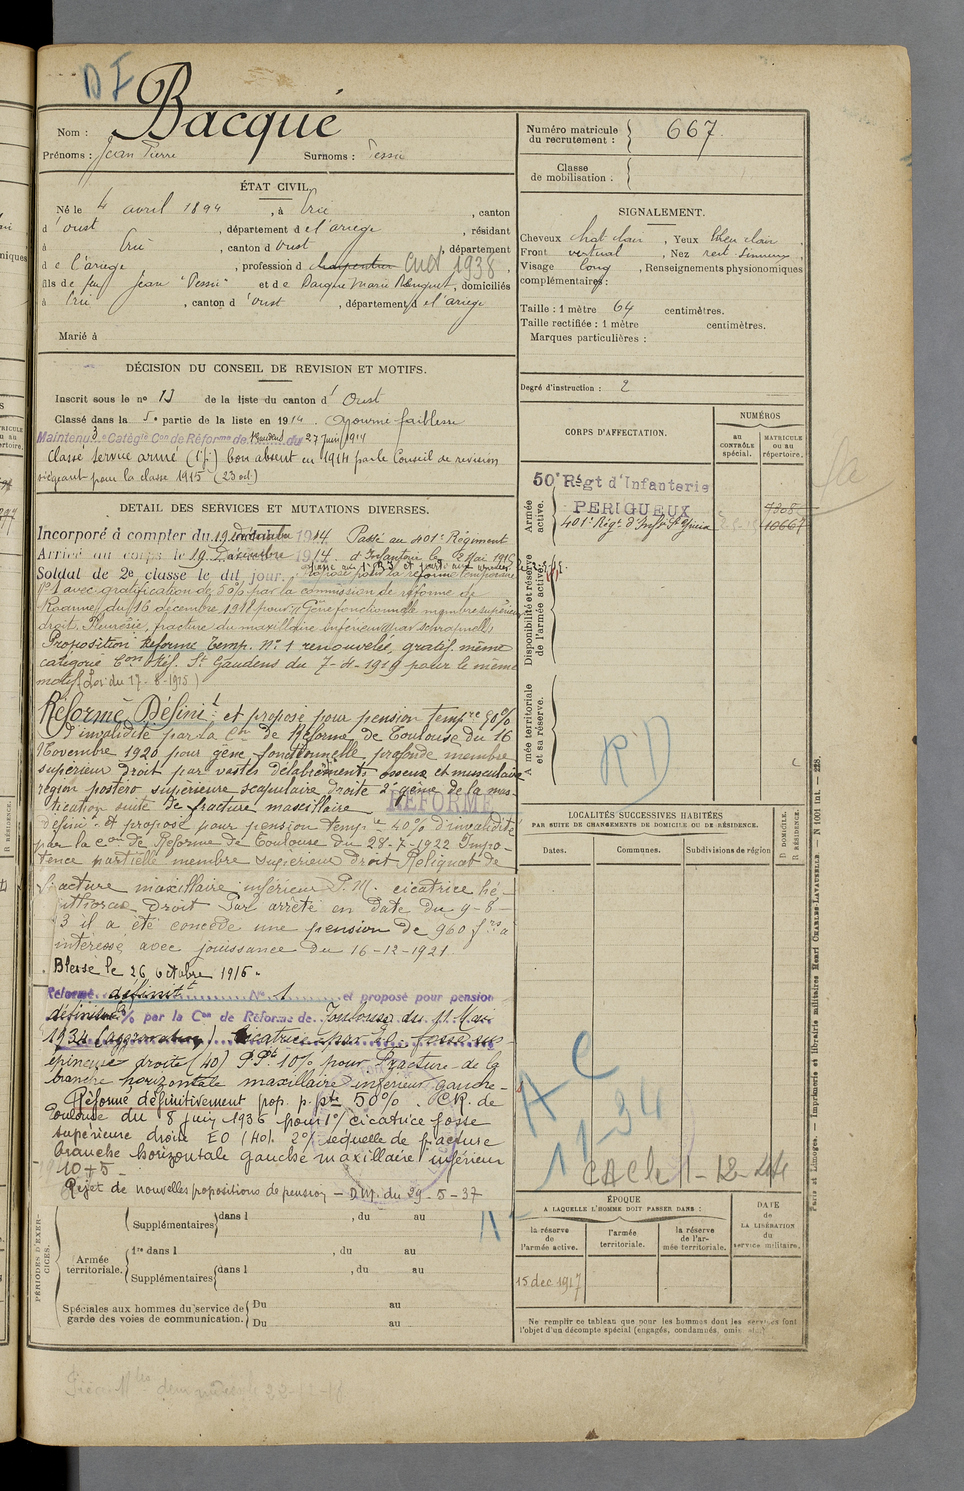 DF
Bacqué
Nom :
Prénoms : Jean Pierre Surnoms : Pessu
ÉTAT CIVIL.
Né le 4 avril 1894, à Ercé, canton
d'Oust, département de l'ariege, résidant
à Ercé, canton d'Oust, département
de l'ariege, profession de charpentier Cult 1938,
fils de feu Jean "Pessu" et de Marie, domiciliés
à Ercé, canton d'Oust, département de l'ariege
Marié à
DÉCISION DU CONSEIL DE REVISION ET MOTIFS.
Inscrit sous le n° 13 de la liste du canton d'Oust
Classé dans la 5e partie de la liste en 1914. Ajourné faiblesse
Maintenu 3e Catégie Con de Réforme de du 27 Juin 1917
Classé service armé (1 p.) bon absent en 1914 par le Conseil de revision
siégeant pour la classe 1915 (23 oct)
DETAIL DES SERVICES ET MUTATIONS DIVERSES.
Incorporé à compter du 19 décembre 1914 Passé au 401e Régiment
Arrivé au corps le 19 Décembre 1914. d'Infanterie le 2 Mai 1915
Soldat de 2e classe le dit jour.
Proposé pour la réforme temporaire
n° 1 avec gratification de 50% par la commission de réforme de
Roanne du 16 décembre 1918 pour: Gêne fonctionnelle membre supérieur
droit, Pleurésie, fracture du maxillaire inférieur (par schrapnell)
Proposition Réforme Temp. N° 1 renouvelée, gratif. même
catégorie Con Réf. St Gaudens du 7-4-1919 pour le même
motif (Loi du 17-8-1915)
Réformé Définit et proposé pour pension tempre 50%
d'invalidité par la Con de Réforme de Toulouse du 16
Novembre 1920 pour gêne fonctionnelle profonde membre
supérieur droit par vastes délabrements osseux et musculaires
région postero supérieure scapulaire droite 2° gêne de la mas-
tication suite de fracture maxillaire
REFORMÉ
Définit et proposé pour pension tempre 40% d'invalidité
par la Con de Réforme de Toulouse du 28-7-1922 Impo-
tence partielle membre supérieur droit Reliquat de
fracture maxillaire inférieur P.M. cicatrice hé-
mithorax Droit Par arrêté en date du 9-8-
3 il a été concédé une pension de 960 frs a
intéressé avec jouissance du 16-12-1921
Blessé le 26 octobre 1916.
Réformé définitt N° 1 et proposé pour pension
définitive % par la Con de Réforme de Toulouse du 11 Mai
1934 (aggravation) cicatrice fosse sus
épineuse droite (40) P.Pte 10% pour fracture de la
branche horizontale maxillaire inférieur gauche-
Réformé définitivement prop. p. pte 50%. CR. de
Toulouse du 8 juin 1936 pour 1°/ cicatrice fosse
supérieure droite EO (40). 2°/ séquelle de fracture
branche horizontale gauche maxillaire inférieur
10 + 5 -
Rejet de nouvelles propositions de pension - D.M. du 29-5-37
PÉRIODES D'EXERCICES.
Supplémentaires dans l , du au
Armée territoriale.
1re dans l , du au
Supplémentaires dans l , du au
Spéciales aux hommes du service de
garde des voies de communication.
Du au
Du au
Numéro matricule
du recrutement : 667.
Classe
de mobilisation :
SIGNALEMENT.
Cheveux chat clair, Yeux bleu clair,
Front vertical, Nez rect. sinueux,
Visage long, Renseignements physionomiques
complémentaires :
Taille : 1 mètre 64 centimètres.
Taille rectifiée : 1 mètre centimètres.
Marques particulières :
Degré d'instruction : 2
CORPS D'AFFECTATION.
NUMÉROS
au CONTRÔLE spécial.
MATRICULE ou au répertoire.
Armée active.
50e Régt d'Infanterie
PERIGUEUX
7308
401e Régt d'Infrie 10667
Disponibilité et réserve de l'armée active.
Armée territoriale et sa réserve.
RD
LOCALITÉS SUCCESSIVES HABITÉES
PAR SUITE DE CHANGEMENTS DE DOMICILE OU DE RÉSIDENCE.
Dates. Communes. Subdivisions de région
D DOMICILE.
R RÉSIDENCE.
AC
11-34
CACh 1-12-44
ÉPOQUE
A LAQUELLE L'HOMME DOIT PASSER DANS :
la réserve de l'armée active.
l'armée territoriale.
la réserve de l'armée territoriale.
DATE de LA LIBÉRATION du service militaire.
15 dec 1917
Ne remplir ce tableau que pour les hommes dont les services font
l'objet d'un décompte spécial (engagés, condamnés, omis, etc.)
Paris et Limoges. — Imprimerie et librairie militaires Henri CHARLES-LAVAUZELLE. — N 1001 int. — 228.